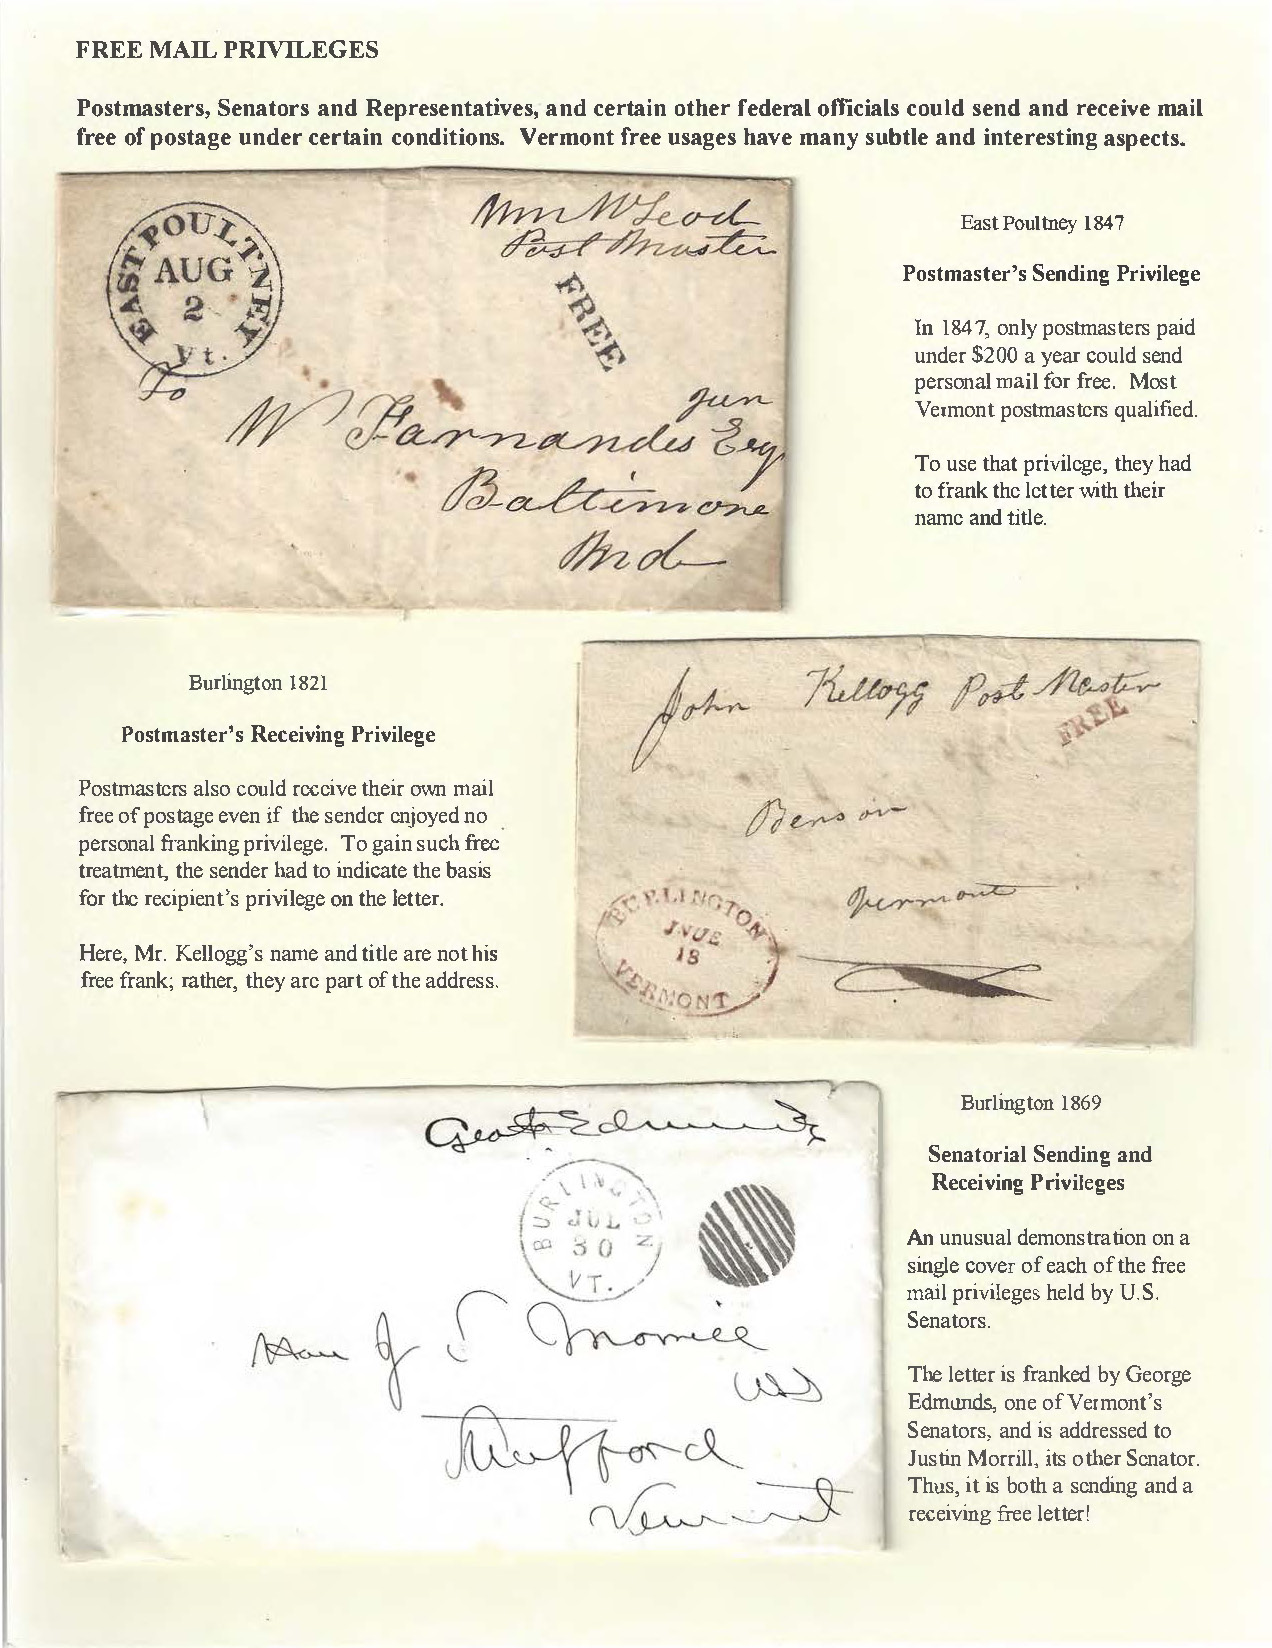 FREE MAIL PRIVILEGES
Postmasters, Senators and Representatives, and certain other federal officials could send and receive mail
free of postage under certain conditions. Vermont free usages have many subtle and interesting aspects.
EAST POULTNEY
AUG
2
Vt.
Wm McLeod
Post Master
FREE
To
W Farnandes jun Esq
Baltimore
Md
East Poultney 1847
Postmaster's Sending Privilege
In 1847, only postmasters paid
under $200 a year could send
personal mail for free. Most
Vermont postmasters qualified.
To use that privilege, they had
to frank the letter with their
name and title.
Burlington 1821
Postmaster's Receiving Privilege
Postmasters also could receive their own mail
free of postage even if the sender enjoyed no
personal franking privilege. To gain such free
treatment, the sender had to indicate the basis
for the recipient's privilege on the letter.
Here, Mr. Kellogg's name and title are not his
free frank; rather, they are part of the address.
John Kellogg Post Master
FREE
Benson
Vermont
BURLINGTON
JNUE
18
VERMONT
Geo F Edmunds
BURLINGTON
JUL
30
VT.
Hon J S Morrill
USS
Strafford
Vermont
Burlington 1869
Senatorial Sending and
Receiving Privileges
An unusual demonstration on a
single cover of each of the free
mail privileges held by U.S.
Senators.
The letter is franked by George
Edmunds, one of Vermont's
Senators, and is addressed to
Justin Morrill, its other Senator.
Thus, it is both a sending and a
receiving free letter!